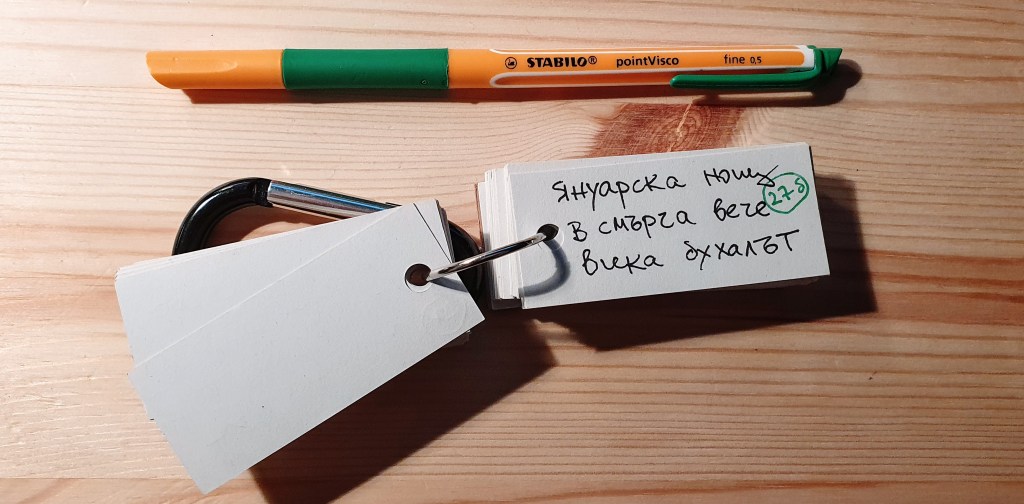 STABILO® pointVisco fine 0,5
Януарска нощ
В смърча вече
Вика бухалът